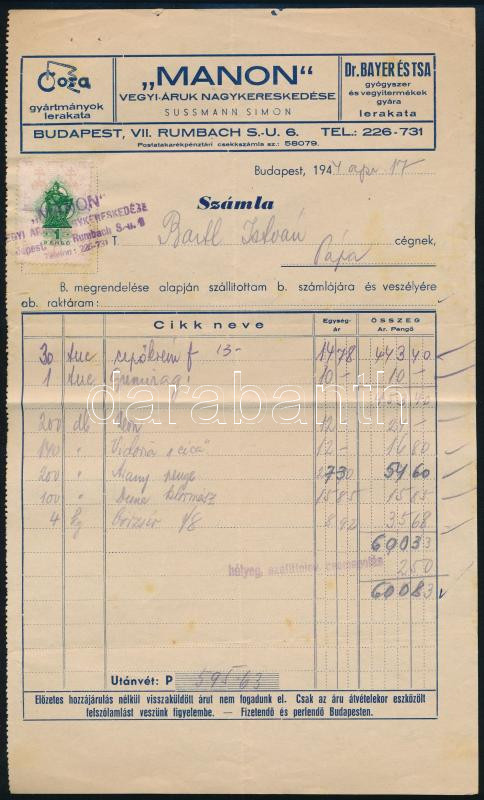 Coza
gyártmányok
lerakata
„MANON“
VEGYI-ÁRUK NAGYKERESKEDÉSE
SUSSMANN SIMON
Dr. BAYER ÉS TSA
gyógyszer
és vegyitermékek
gyára
lerakata
BUDAPEST, VII. RUMBACH S.-U. 6. TEL.: 226-731
Postatakarékpénztári csekkszámla sz.: 58079.
Budapest, 1944 apr 17
Számla
1
PENGŐ
„MANON“
VEGYI ÁRUK NAGYKERESKEDÉSE
Budapest Rumbach S.-u. 6
Telefon: 226-731
T. Bartl István cégnek,
Pápa
B. megrendelése alapján szállítottam b. számlájára és veszélyére
ab. raktáram:
Cikk neve Egység-ár ÖSSZEG Ar. Pengő
30 tuc 13- 14 78 443 40
1 tuc 10 - 10 -
200 db 12 -
140 " 12 - 16 80
200 " Arany 2730 54 60
100 " Duna 15 85 15 85
4 kg 1/8 8.92 35 68
600 33
bélyeg, szállítólev. csomagolás 2 50
600 83
Utánvét: P 595.63
darabanth
Előzetes hozzájárulás nélkül visszaküldött árut nem fogadunk el. Csak az áru átvételekor eszközölt
felszólamlást veszünk figyelembe. — Fizetendő és perlendő Budapesten.